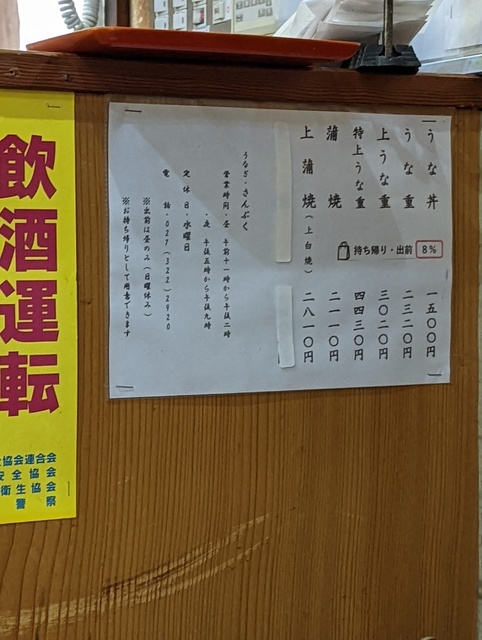 うな丼 一五〇〇円
うな重 二三二〇円
上うな重 三〇二〇円
特上うな重 四四三〇円
蒲焼 二一一〇円
上蒲焼(上白焼) 二八一〇円
持ち帰り・出前 8%
うなぎ・さんぷく
営業時間・昼 午前十一時から午後二時
・夜 午後五時から午後九時
定休日・水曜日
電話・027(322)2920
※出前は昼のみ(日曜休み)
※お持ち帰りとして用意できます
飲酒運転
協会連合会
安全協会
衛生協会
警察